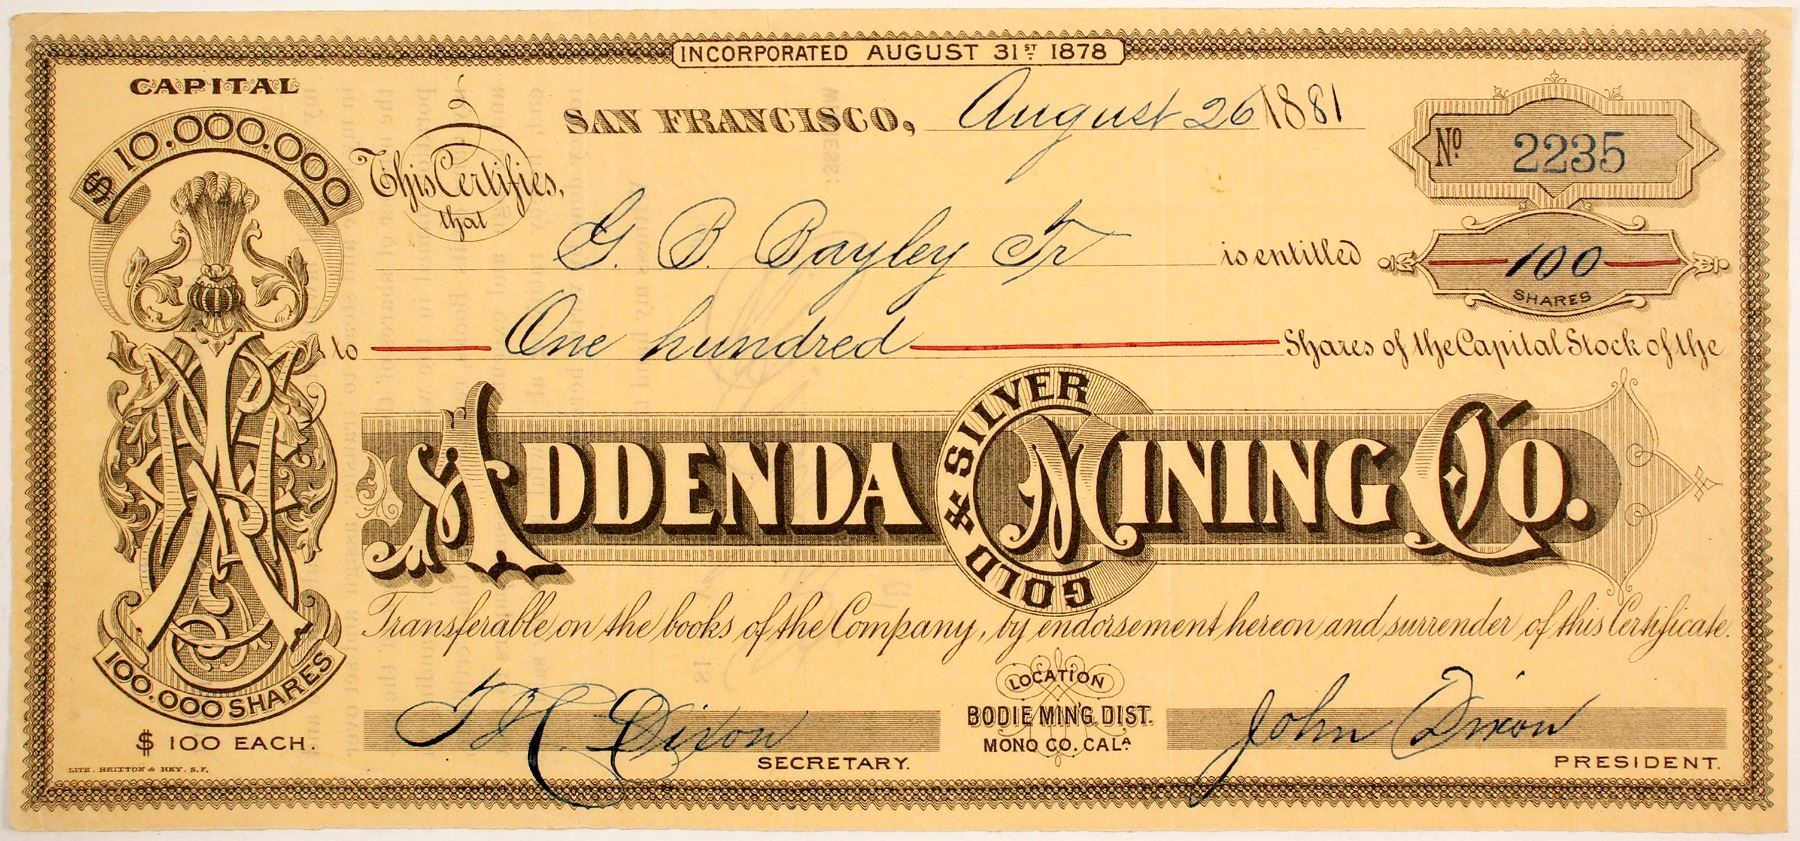 INCORPORATED AUGUST 31ST 1878
CAPITAL
$10.000.000
SAN FRANCISCO, August 26 1881
No. 2235
This Certifies,
that
G. B. Bayley Jr is entitled
100
SHARES
to One hundred Shares of the Capital Stock of the
ADDENDA GOLD & SILVER MINING CO.
Transferable on the books of the Company, by endorsement hereon and surrender of this Certificate.
100.000 SHARES
$100 EACH.
LOCATION
BODIE MIN'G. DIST.
MONO CO. CALA
Dixon
SECRETARY.
John Dixon
PRESIDENT.
LITH. BRITTON & REY, S.F.